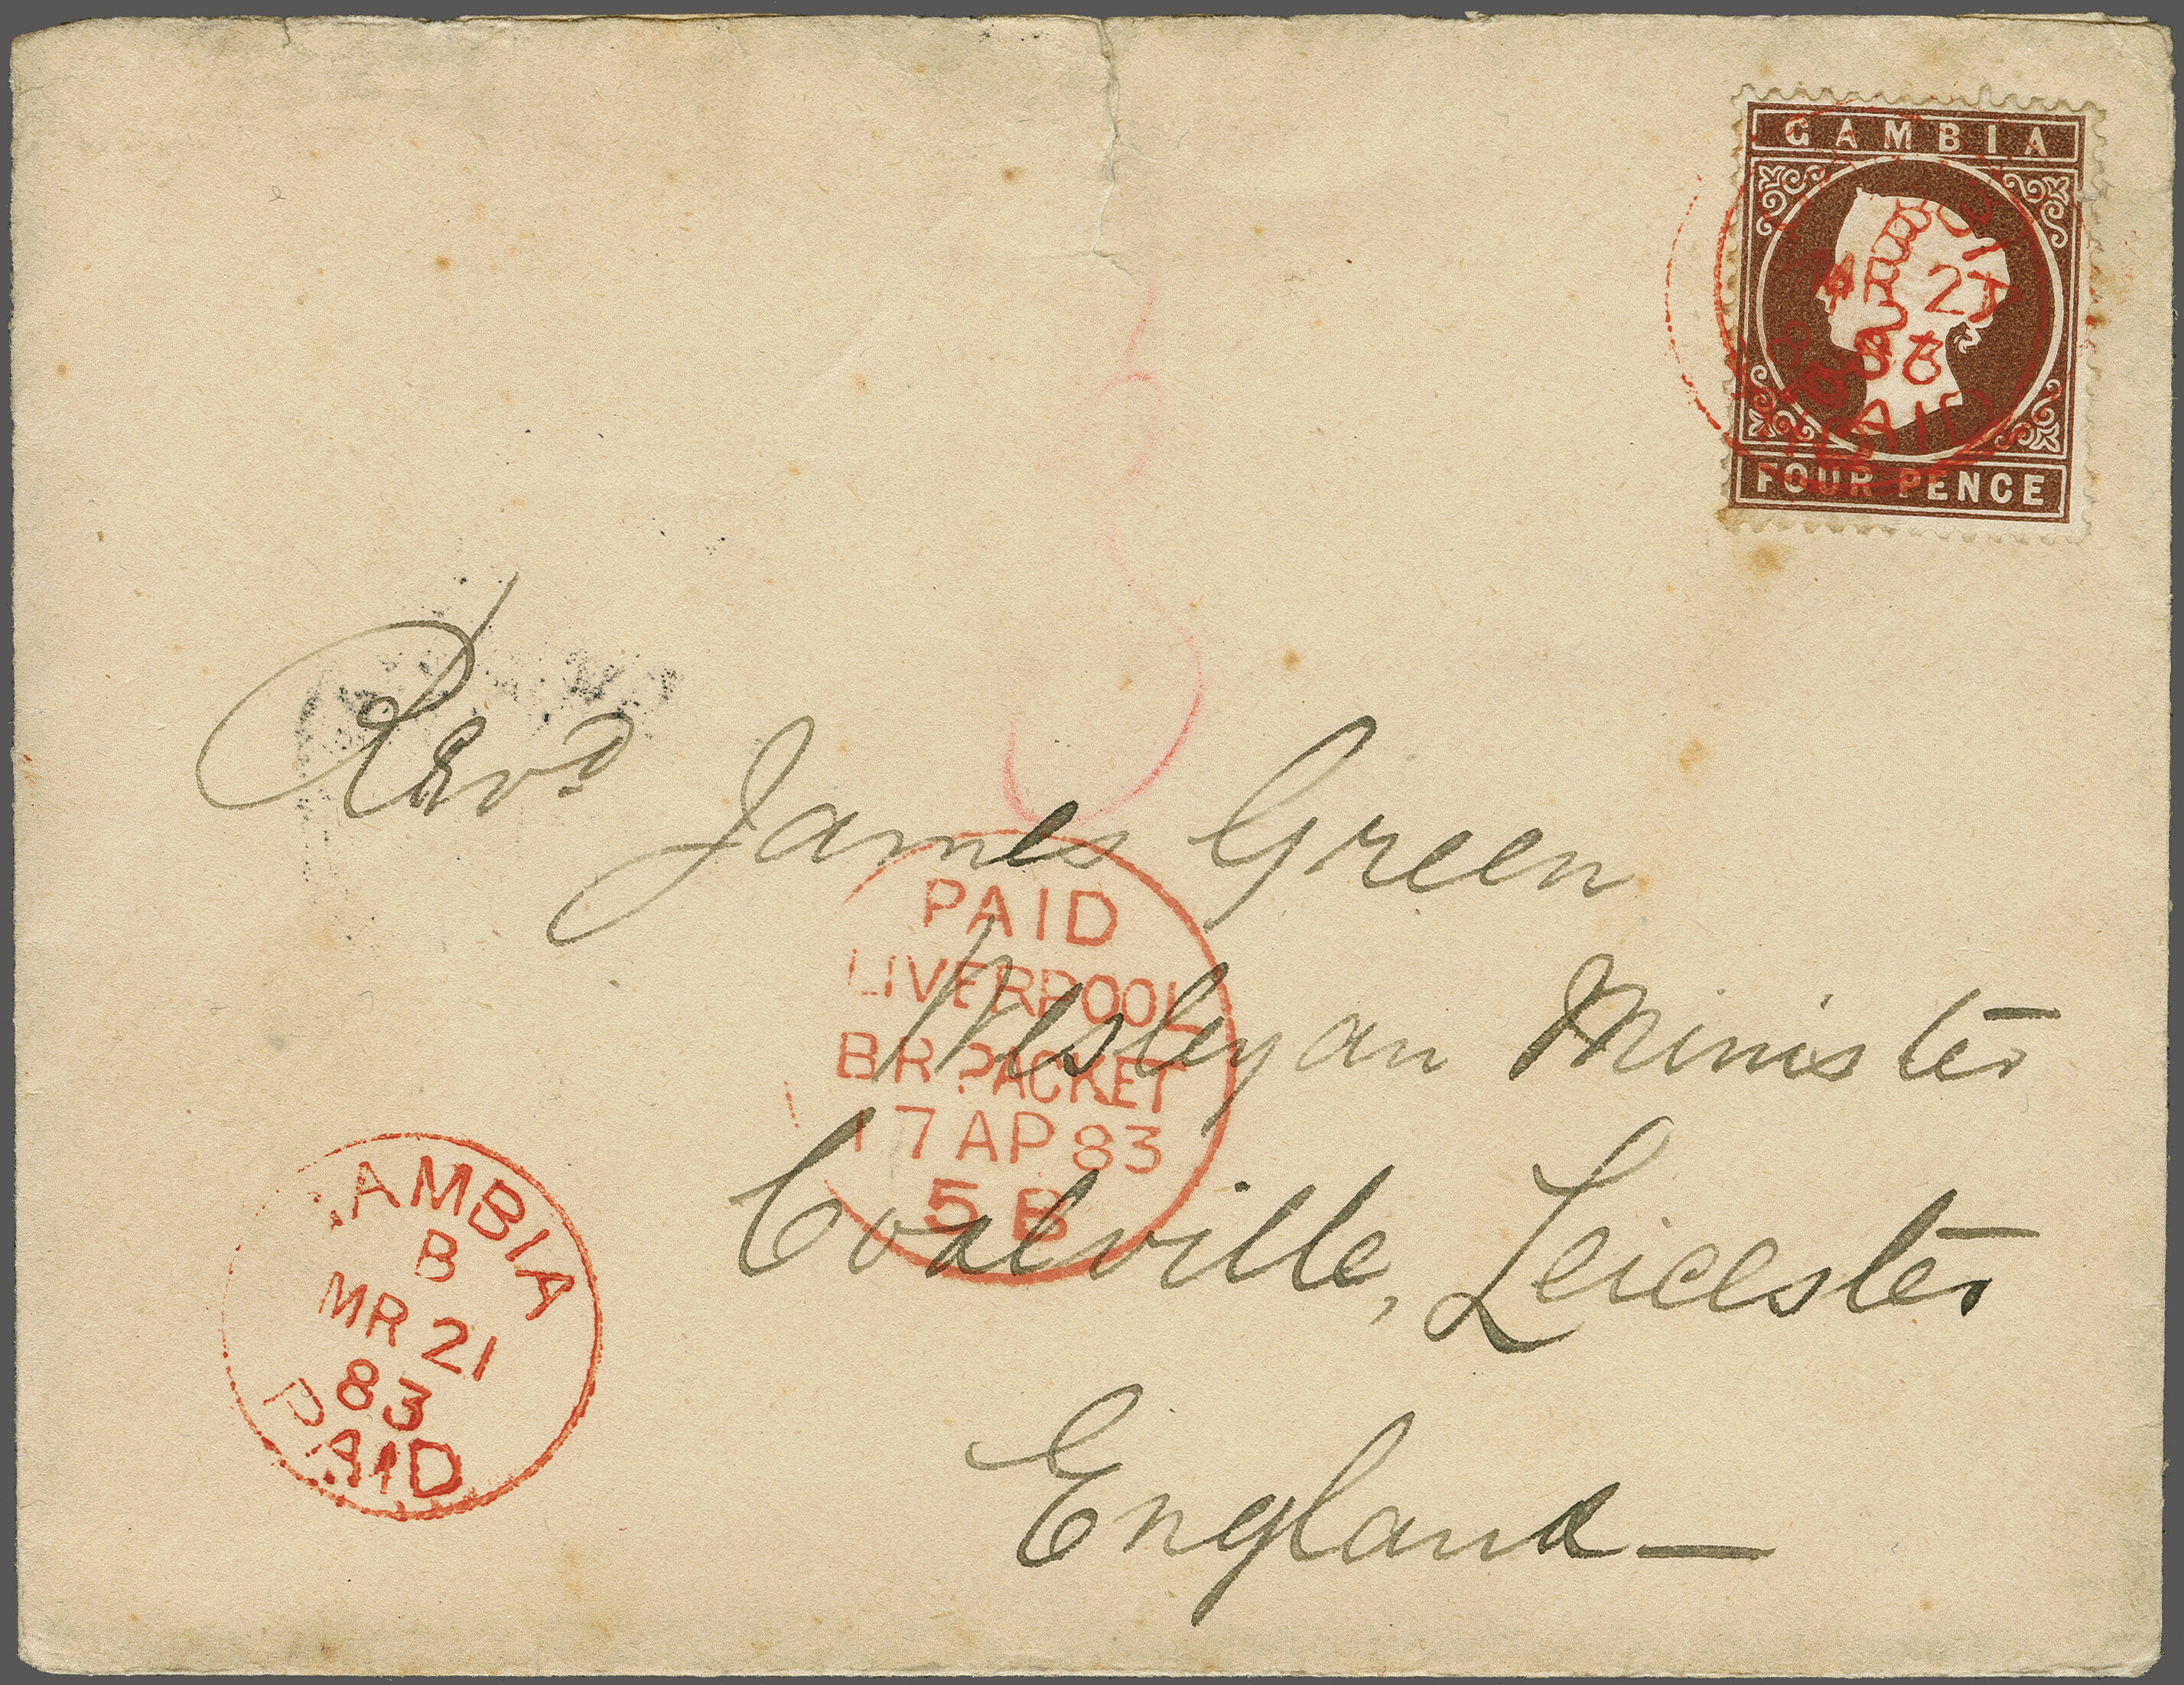 GAMBIA
FOUR PENCE
Revd James Green
Wesleyan Minister
Coalville, Leicester
England —
PAID
LIVERPOOL
BR PACKET
17 AP 83
5 B
GAMBIA
B
MR 21
83
PAID